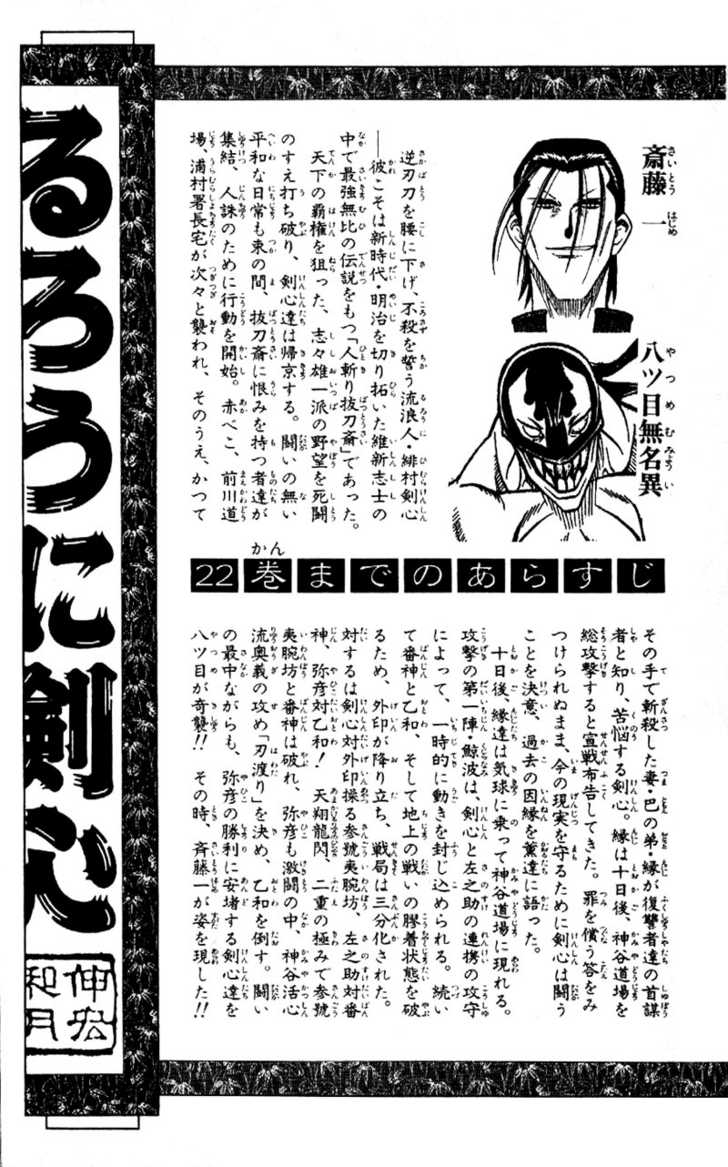 斎藤一
八ツ目無名異
22巻までのあらすじ
逆刃刀を腰に下げ、不殺を誓う流浪人・緋村剣心
──彼こそは新時代・明治を切り拓いた維新志士の
中で最強無比の伝説をもつ「人斬り抜刀斎」であった。
天下の覇権を狙った、志々雄一派の野望を死闘
のすえ打ち破り、剣心達は帰京する。闘いの無い
平和な日常も束の間、抜刀斎に恨みを持つ者達が
集結、人誅のために行動を開始。赤べこ、前川道
場、浦村署長宅が次々と襲われ、そのうえ、かつて
その手で斬殺した妻・巴の弟・縁が復讐者達の首謀
者と知り、苦悩する剣心。縁は十日後、神谷道場を
総攻撃すると宣戦布告してきた。罪を償う答をみ
つけられぬまま、今の現実を守るために剣心は闘う
ことを決意、過去の因縁を薫達に語った。
十日後、縁達は気球に乗って神谷道場に現れる。
攻撃の第一陣・鯨波は、剣心と左之助の連携の攻守
によって、一時的に動きを封じ込められる。続い
て番神と乙和、そして地上の戦いの膠着状態を破
るため、外印が降り立ち、戦局は三分化された。
対するは剣心対外印操る参號夷腕坊、左之助対番
神、弥彦対乙和！天翔龍閃、二重の極みで参號
夷腕坊と番神は破れ、弥彦も激闘の中、神谷活心
流奥義の攻め「刃渡り」を決め、乙和を倒す。闘い
の最中ながらも、弥彦の勝利に安堵する剣心達を
八ツ目が奇襲!!その時、斉藤一が姿を現した!!
るろうに剣心
伸宏
和月